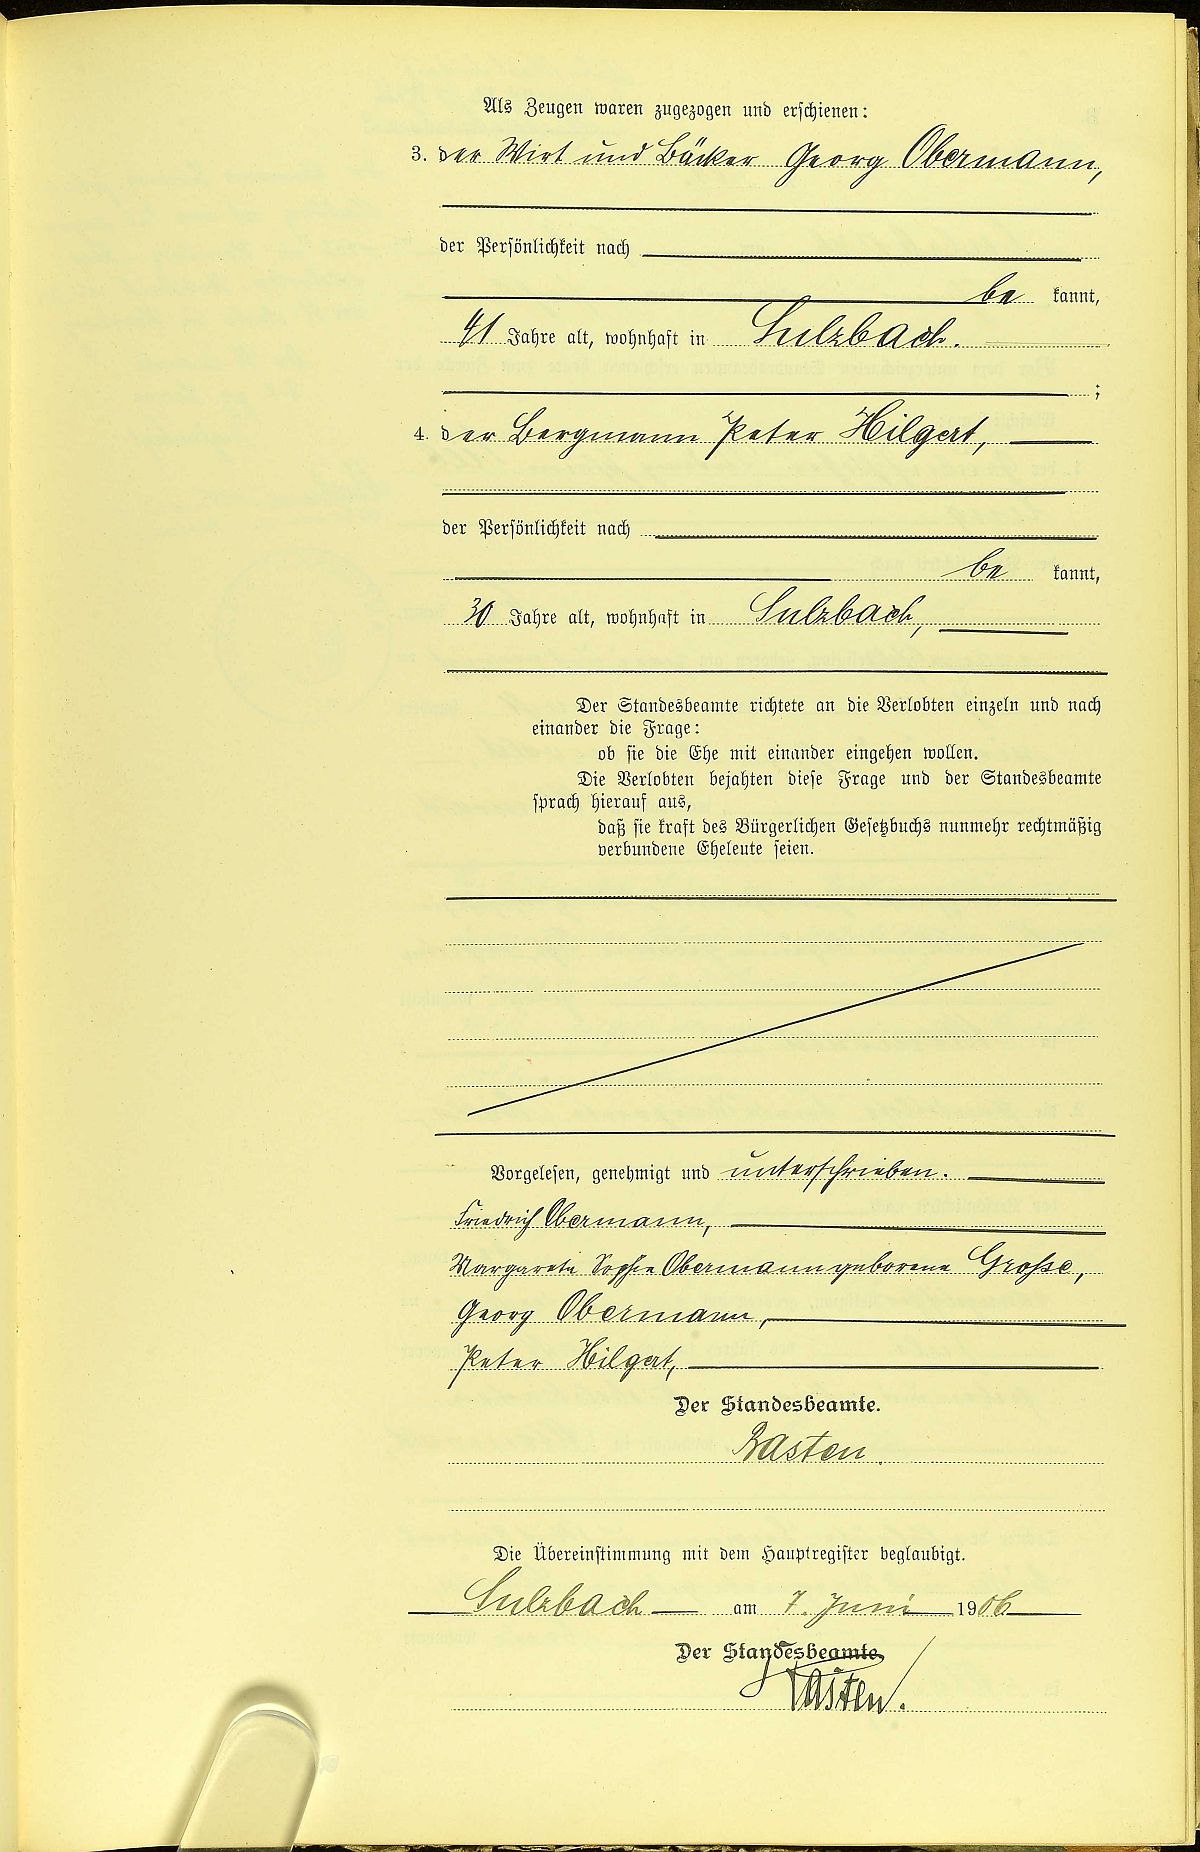 Als Zeugen waren zugezogen und erschienen:
3. der Wirt und Bäcker Georg Obermann,
der Persönlichkeit nach
be kannt,
41 Jahre alt, wohnhaft in Sulzbach.
;
4. der Bergmann Peter Hilgert,
der Persönlichkeit nach
be kannt,
30 Jahre alt, wohnhaft in Sulzbach,
Der Standesbeamte richtete an die Verlobten einzeln und nach
einander die Frage:
ob sie die Ehe mit einander eingehen wollen.
Die Verlobten bejahten diese Frage und der Standesbeamte
sprach hierauf aus,
daß sie kraft des Bürgerlichen Gesetzbuchs nunmehr rechtmäßig
verbundene Eheleute seien.
Vorgelesen, genehmigt und unterschrieben.
Friedrich Obermann,
Margareta Sophie Obermann geborene Grosse,
Georg Obermann,
Peter Hilgert,
Der Standesbeamte.
Basten.
Die Übereinstimmung mit dem Hauptregister beglaubigt.
Sulzbach am 7. Juni 1906
Der Standesbeamte.
Basten.